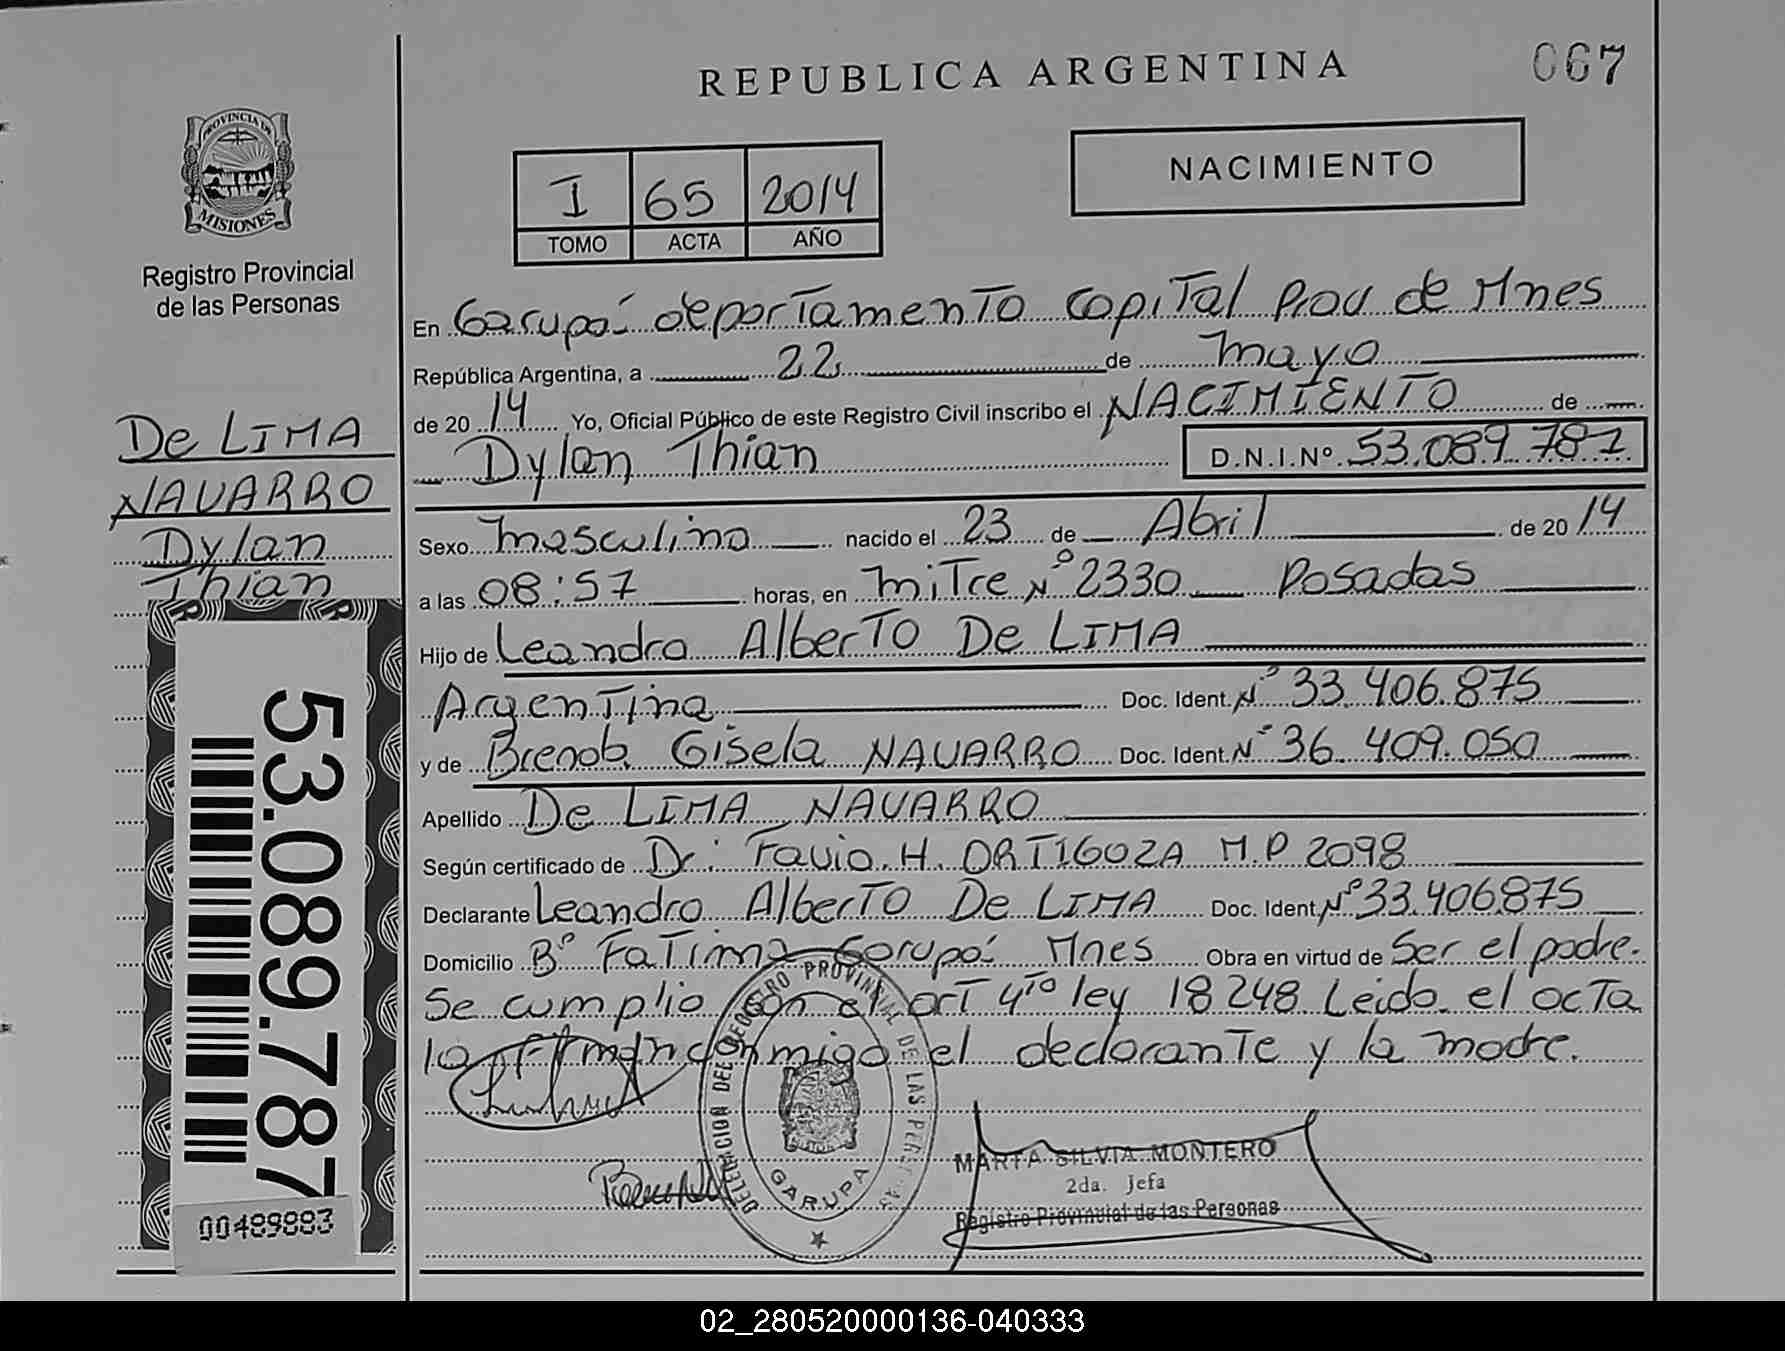 REPUBLICA ARGENTINA
067
PROVINCIA DE
MISIONES
Registro Provincial
de las Personas
I 65 2014
TOMO ACTA AÑO
NACIMIENTO
En Garupá departamento Capital Prov de Mnes
República Argentina, a 22 de mayo
de 2014 Yo, Oficial Público de este Registro Civil inscribo el NACIMIENTO de
Dylan Thian D.N.I.Nº 53.089.787
De LIMA
NAVARRO
Dylan
Thian
Sexo masculino nacido el 23 de Abril de 2014
a las 08:57 horas, en mitre Nº 2330 Posadas
Hijo de Leandro Alberto De LIMA
Argentina Doc. Ident. Nº 33.406.875
y de Brenda Gisela NAVARRO Doc. Ident. Nº 36.409.050
Apellido De LIMA NAVARRO
Según certificado de Dr: Favio H. ORTIGOZA M.P 2098
Declarante Leandro Alberto De LIMA Doc. Ident. Nº 33.406.875
Domicilio Bº Fatima Garupá Mnes Obra en virtud de Ser el padre.
Se cumplio con el art 4to ley 18248 Leida el acta
la firman conmigo el declarante y la madre.
53.089.787
00489883
DELEGACION DEL REGISTRO PROVINCIAL DE LAS PERSONAS
GARUPA
MARTA SILVIA MONTERO
2da. Jefa
Registro Provincial de las Personas
02_280520000136-040333